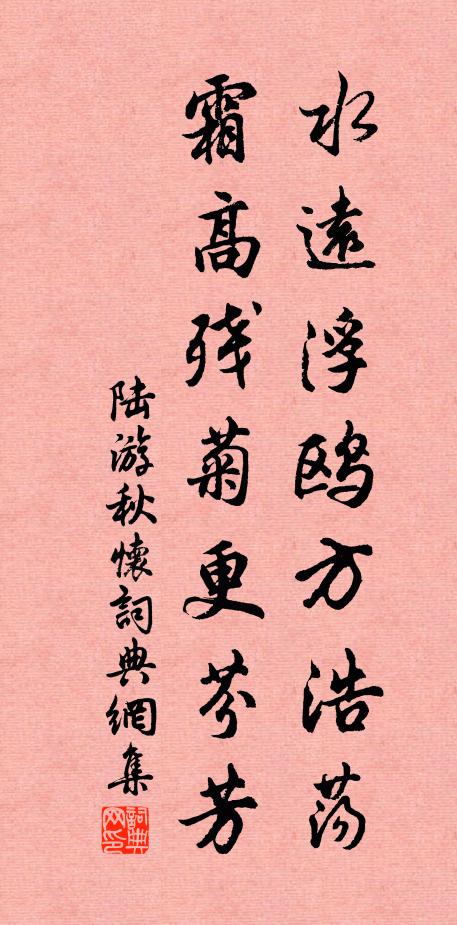 水遠浮鸥方浩荡
霜高残菊更芬芳
陆游秋懷詞典網集
詞典网印